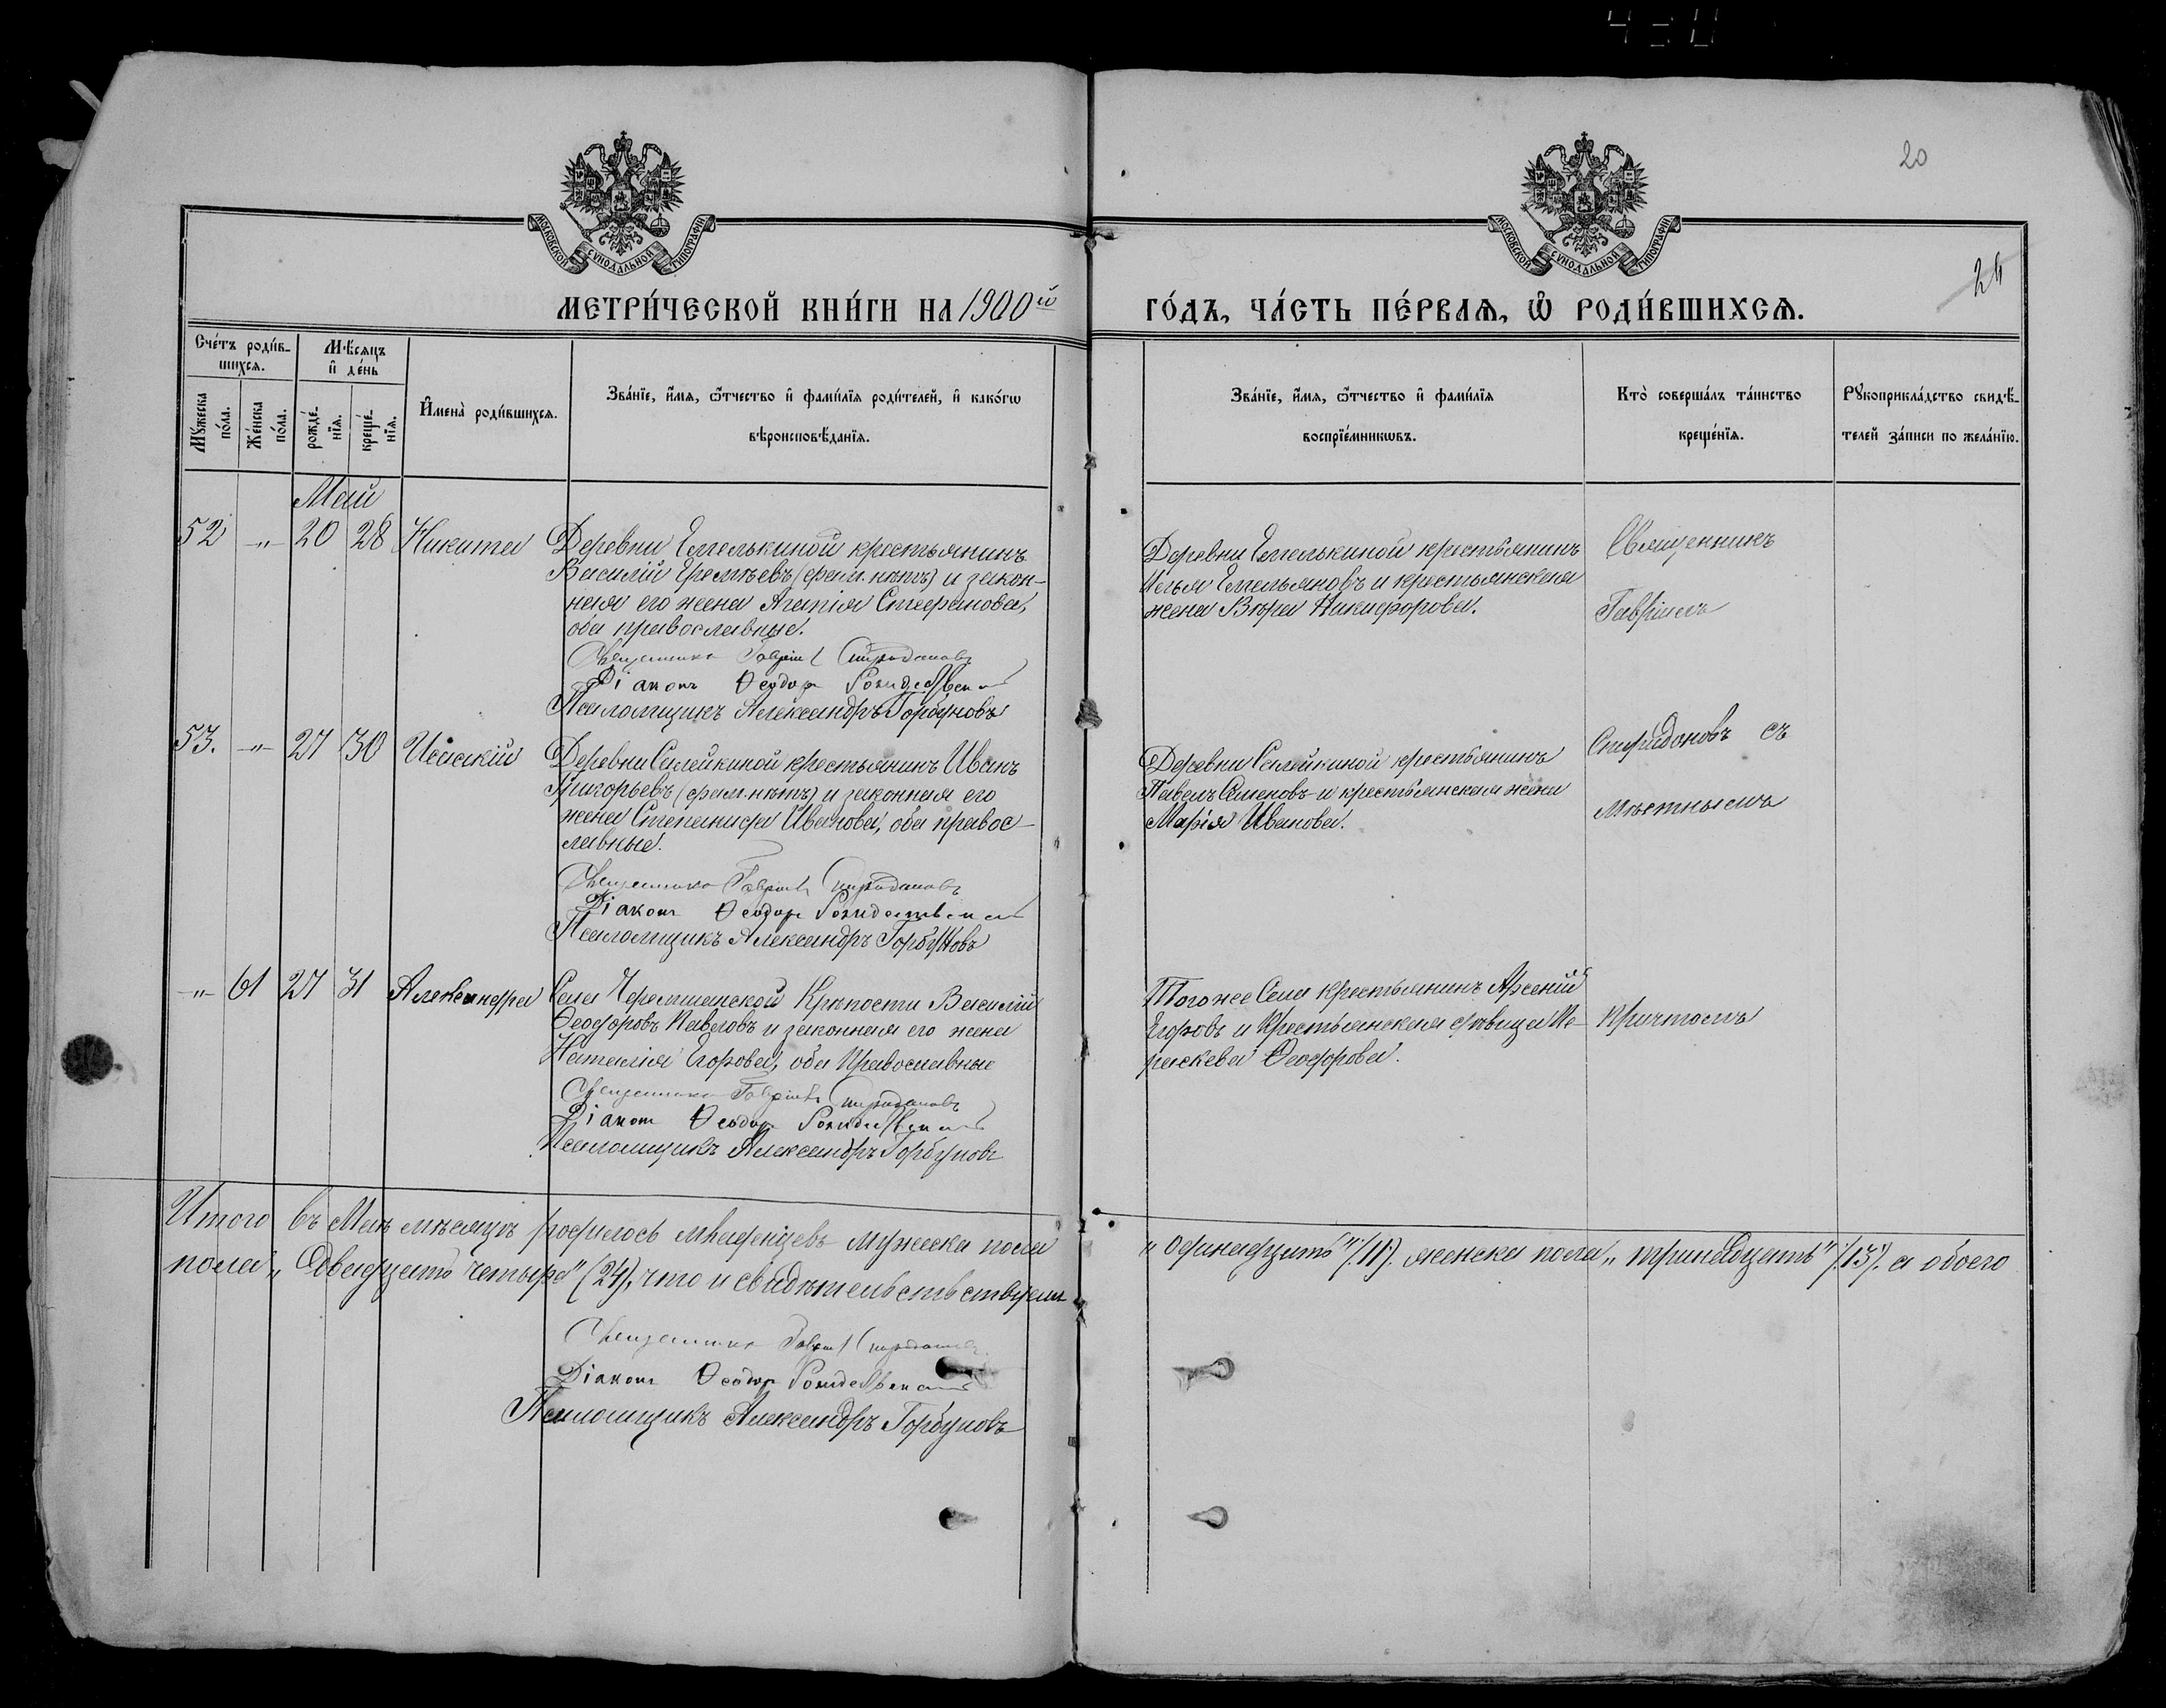 20
24
МОСКОВСКОЙ СУНОДАЛЬНОЙ ТИПОГРАФІИ
МОСКОВСКОЙ СУНОДАЛЬНОЙ ТИПОГРАФІИ
МЕТРИ́ЧЕСКОЙ КНИ́ГИ НА 1900й
ГО́ДЪ, ЧА́СТЬ ПЕ́РВАѦ, Ѿ РОДИ́ВШИХСѦ.
Сче́тъ роди́в-
шихсѧ.
Мѣ́сѧцъ
и҆ де́нь
Мꙋ́жеска
по́ла.
Же́нска
по́ла.
рожде́-
нїѧ.
креще́-
нїѧ.
И҆мена̀ роди́вшихсѧ.
Зва́нїе, и҆́мѧ, ѻ҆́тчество и҆ фами́лїѧ роди́телей, и҆ како́гѡ
вѣроисповѣ́данїѧ.
Зва́нїе, и҆́мѧ, ѻ҆́тчество и҆ фами́лїѧ
воспрїе́мникѡвъ.
Кто̀ соверша́лъ та́инство
креще́нїѧ.
Рꙋкоприкла́дство свидѣ́-
телей за́писи по жела́нїю.
Май
52 -„- 20 28 Никита
Деревни Емелькиной крестьянинъ
Василій Еремѣевъ (фам. нѣтъ) и закон-
ная его жена Агапія Стефанова,
оба православные.
Священникъ Гавріилъ Спиридоновъ
Діаконъ Ѳеодоръ Рождественскій
Псаломщикъ Александръ Горбуновъ
Деревни Емелькиной крестьянинъ
Илья Емельяновъ и крестьянская
жена Вѣра Никифорова.
Священникъ
Гавріилъ
53. -„- 27 30 Исаакій
Деревни Семейкиной крестьянинъ Иванъ
Григорьевъ (фам. нѣтъ) и законная его
жена Степанида Иванова, оба правос-
лавные.
Священникъ Гавріилъ Спиридоновъ
Діаконъ Ѳеодоръ Рождественскій
Псаломщикъ Александръ Горбуновъ
Деревни Семейкиной крестьянинъ
Павелъ Семеновъ и крестьянская жена
Марія Иванова.
Спиридоновъ съ
мѣстнымъ
-„- 61 27 31 Александра
Села Черемшанской Крѣпости Василій
Ѳеодоровъ Павловъ и законная его жена
Наталія Егорова, оба Православные
Священникъ Гавріилъ Спиридоновъ
Діаконъ Ѳеодоръ Рождественскій
Псаломщикъ Александръ Горбуновъ
Того же Села крестьянинъ Арсеній
Егоровъ и Крестьянская дѣвица Па-
раскева Ѳеодорова.
Причтомъ
Итого въ Маѣ мѣсяцѣ родилось младенцевъ мужеска пола
„одинадцать" /.11/. женска пола „тринадцать" /.13/. а обоего
пола „Двадцать четыре" (24), что и свидѣтельствуемъ
Священникъ Гавріилъ Спиридоновъ.
Діаконъ Ѳеодоръ Рождественскій
Псаломщикъ Александръ Горбуновъ